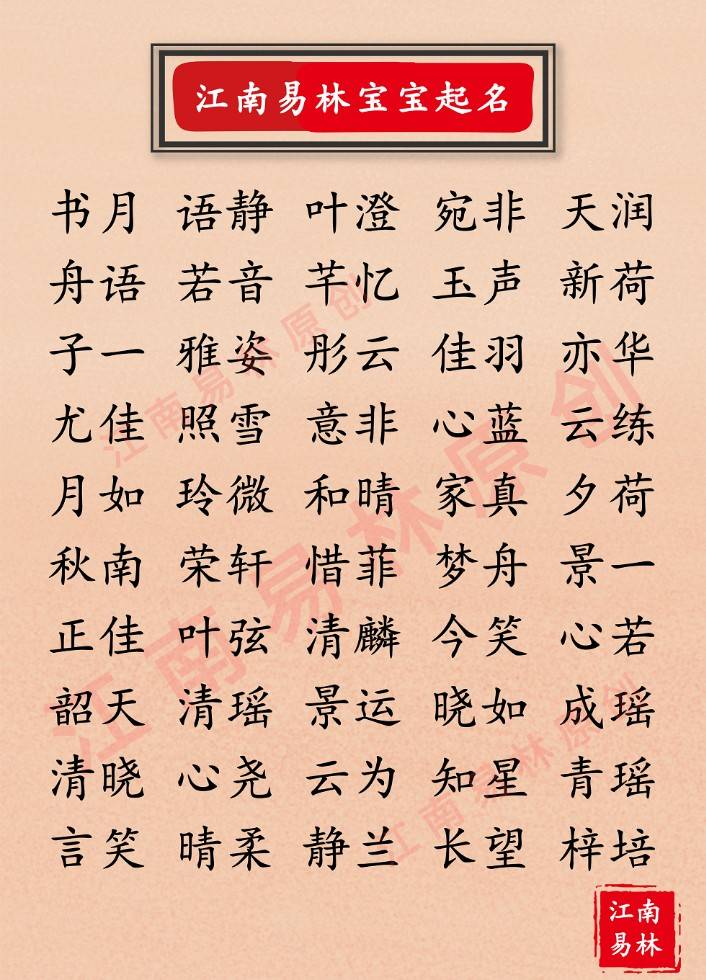 江南易林宝宝起名
书月 语静 叶澄 宛非 天润
舟语 若音 芊忆 玉声 新荷
子一 雅姿 彤云 佳羽 亦华
尤佳 照雪 意非 心蓝 云练
月如 玲微 和晴 家真 夕荷
秋南 荣轩 惜菲 梦舟 景一
正佳 叶弦 清麟 今笑 心若
韶天 清瑶 景运 晓如 成瑶
清晓 心尧 云为 知星 青瑶
言笑 晴柔 静兰 长望 梓培
江南易林原创
江南易林原创
江南易林原创
江南
易林